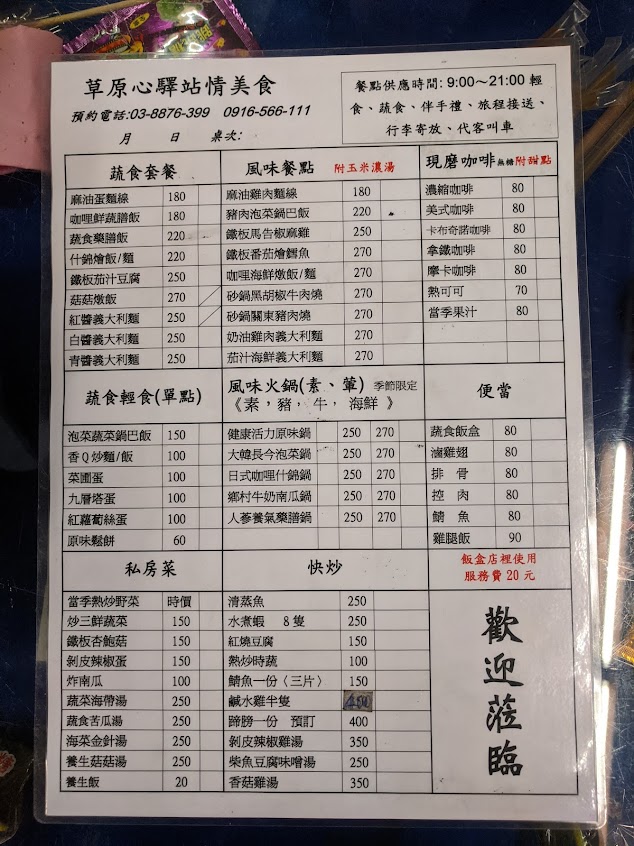 草原心驛站情美食
預約電話:03-8876-399 0916-566-111
月 日 桌次:
餐點供應時間: 9:00~21:00 輕
食、蔬食、伴手禮、旅程接送、
行李寄放、代客叫車
蔬食套餐
麻油蛋麵線 180
咖哩鮮蔬膳飯 180
蔬食藥膳飯 220
什錦燴飯/麵 220
鐵板茄汁豆腐 250
菇菇燉飯 270
紅醬義大利麵 250
白醬義大利麵 250
青醬義大利麵 250
風味餐點 附玉米濃湯
麻油雞肉麵線 180
豬肉泡菜鍋巴飯 220
鐵板馬告椒麻雞 250
鐵板番茄燴鱈魚 270
咖哩海鮮燉飯/麵 270
砂鍋黑胡椒牛肉燒 270
砂鍋關東豬肉燒 270
奶油雞肉義大利麵 270
茄汁海鮮義大利麵 270
現磨咖啡 無糖 附甜點
濃縮咖啡 80
美式咖啡 80
卡布奇諾咖啡 80
拿鐵咖啡 80
摩卡咖啡 80
熱可可 70
當季果汁 80
蔬食輕食(單點)
泡菜蔬菜鍋巴飯 150
香Q炒麵/飯 100
菜圃蛋 100
九層塔蛋 100
紅蘿蔔絲蛋 100
原味鬆餅 60
風味火鍋(素、葷) 季節限定
《素，豬，牛，海鮮》
健康活力原味鍋 250 270
大韓長今泡菜鍋 250 270
日式咖哩什錦鍋 250 270
鄉村牛奶南瓜鍋 250 270
人蔘養氣藥膳鍋 250 270
便當
蔬食飯盒 80
滷雞翅 80
排骨 80
控肉 80
鯖魚 80
雞腿飯 90
飯盒店裡使用
服務費20元
私房菜
當季熱炒野菜 時價
炒三鮮蔬菜 150
鐵板杏鮑菇 150
剝皮辣椒蛋 150
炸南瓜 100
蔬菜海帶湯 250
蔬食苦瓜湯 250
海菜金針湯 250
養生菇菇湯 250
養生飯 20
快炒
清蒸魚 250
水煮蝦 8隻 250
紅燒豆腐 150
熱炒時蔬 100
鯖魚一份〈三片〉 150
鹹水雞半隻
蹄膀一份 預訂 400
剝皮辣椒雞湯 350
柴魚豆腐味噌湯 250
香菇雞湯 350
歡迎蒞臨